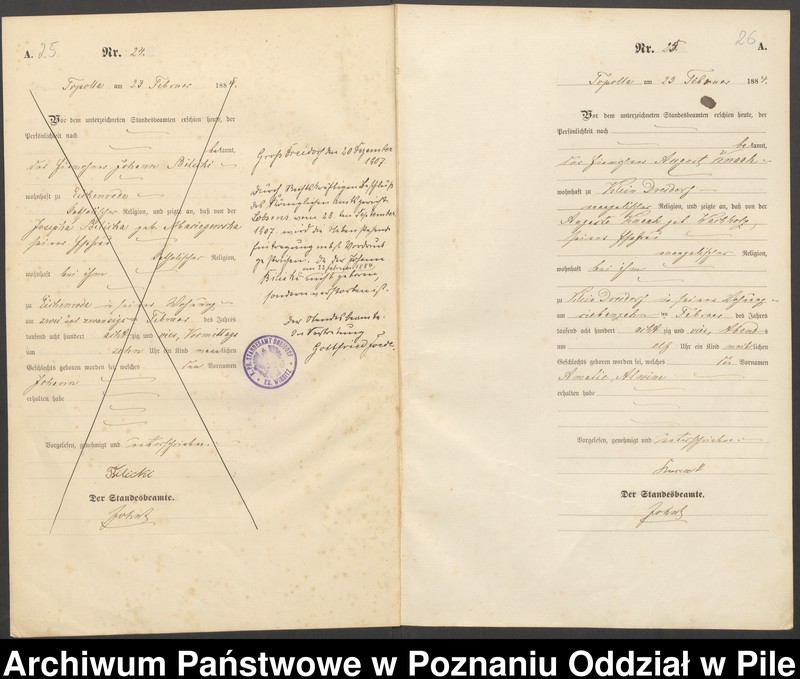 A. 25.
Nr. 24.
Topolla am 23 Februar 1884.
Vor dem unterzeichneten Standesbeamten erschien heute, der
Persönlichkeit nach
bekannt,
Johann Bilicki
wohnhaft zu Eichenrode
katholischer Religion, und zeigte an, daß von der
Josepha Bilicka geb.
seiner Ehefrau
katholischer Religion,
wohnhaft bei ihm
zu Eichenrode in seiner Wohnung
am zwei und zwanzigsten Februar des Jahres
tausend acht hundert achtzig und vier, Vormittags
um zehn Uhr ein Kind männlichen
Geschlechts geboren worden sei, welches den Vornamen
Johann
erhalten habe
Vorgelesen, genehmigt und unterschrieben
Bilicki
Der Standesbeamte.
Großdreidorf den 20 Dezember
1907.
Durch rechtskräftigen Beschluß
des Königlichen Amtsgerichts
Lobsens vom 28. September
1907 wird die nebenstehende
Eintragung nebst Vordruck
gestrichen. Da der Johann
Bilicki am 22 Februar 1884 nicht geboren,
sondern verstorben ist.
Der Standesbeamte.
In Vertretung
K. PR. STANDESAMT DREIDORF
KR. WIRSITZ
26
A.
Nr. 25.
Topolla am 23 Februar 1884.
Vor dem unterzeichneten Standesbeamten erschien heute, der
Persönlichkeit nach
bekannt,
August
wohnhaft zu Klein Dreidorf
evangelischer Religion, und zeigte an, daß von der
Auguste geb.
seiner Ehefrau
evangelischer Religion,
wohnhaft bei ihm
zu Klein Dreidorf in seiner Wohnung
am siebenzehn ten Februar des Jahres
tausend acht hundert achtzig und vier, Abends
um elf Uhr ein Kind weiblichen
Geschlechts geboren worden sei, welches den Vornamen
Amalie, Alwine
erhalten habe
Vorgelesen, genehmigt und unterschrieben
Der Standesbeamte.
Archiwum Państwowe w Poznaniu Oddział w Pile